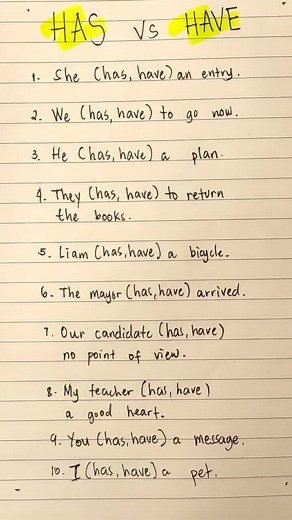 HAS vs HAVE
1. She (has, have) an entry.
2. We (has, have) to go now.
3. He (has, have) a plan.
4. They (has, have) to return
the books.
5. Liam (has, have) a bicycle.
6. The mayor (has, have) arrived.
7. Our candidate (has, have)
no point of view.
8. My teacher (has, have)
a good heart.
9. You (has, have) a message.
10. I (has, have) a pet.